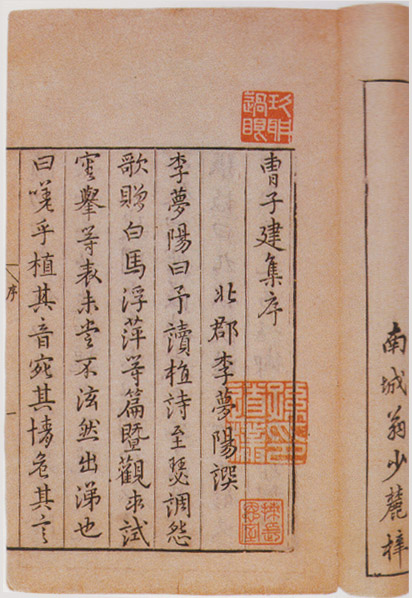 南城翁少麓梓
曺子建集序
北郡李夢陽譔
李夢陽曰予讀植詩至瑟調怨
歌贈白馬浮萍等篇暨觀求試
審舉等表未甞不泫然出涕也
曰嗟乎植其音宛其情危其言
序
一
玖聃過眼